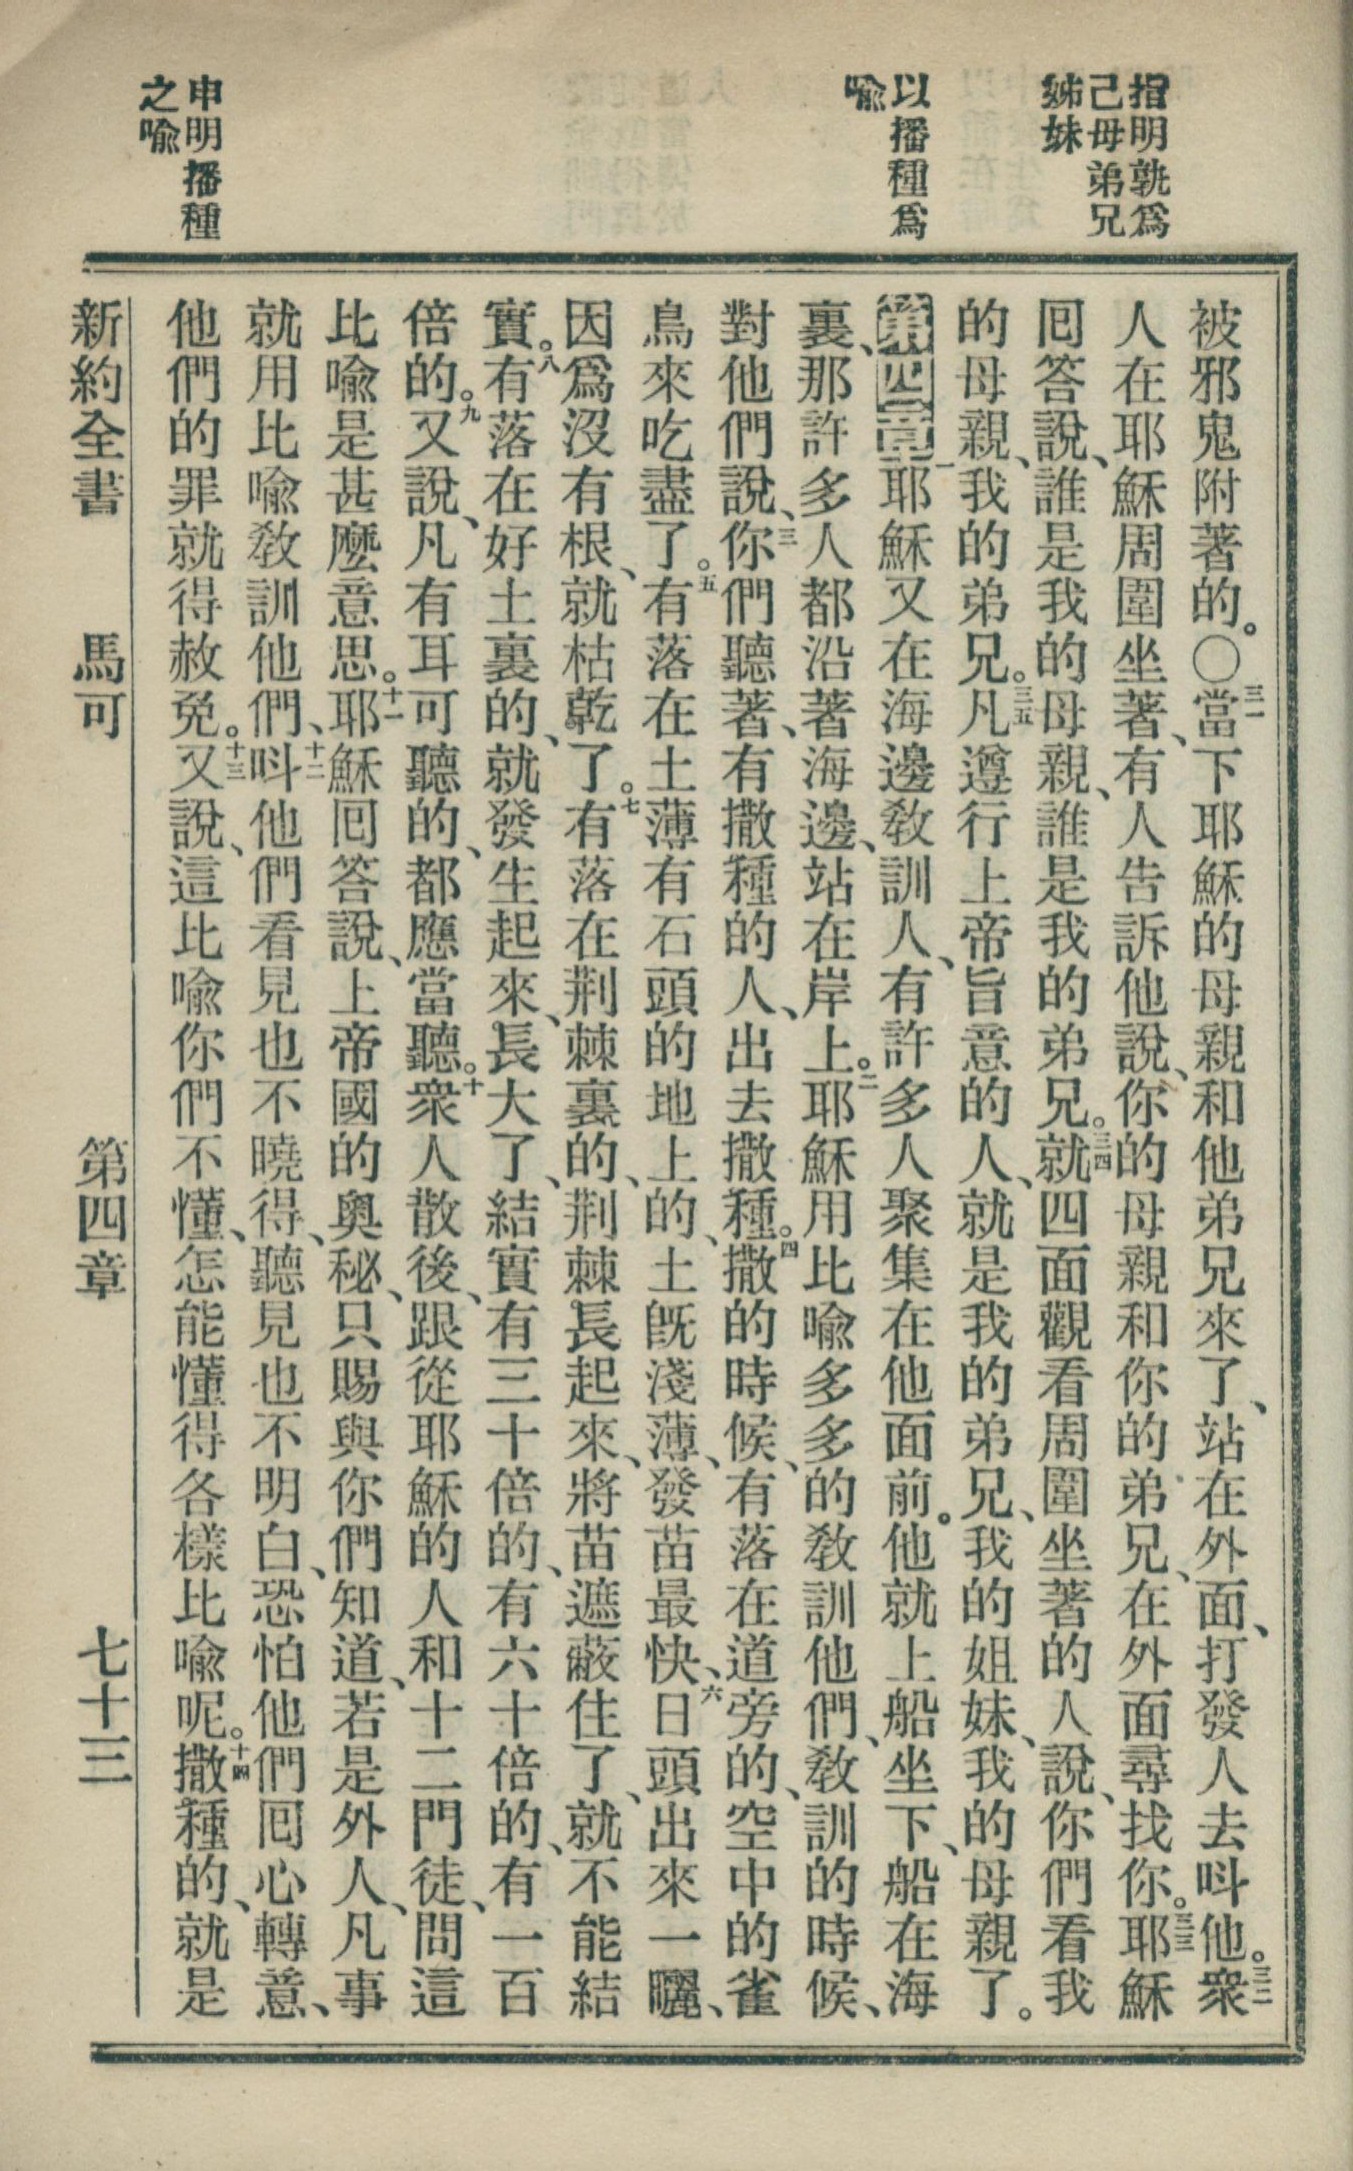 指明孰爲
己母弟兄
姊妹
以播種爲
喩
申明播種
之喩
被邪鬼附著的。〇三一當下耶穌的母親和他弟兄來了、站在外面、打發人去呌他。三二衆
人在耶穌周圍坐著、有人告訴他說、你的母親和你的弟兄、在外面尋找你。三三耶穌
囘答說、誰是我的母親、誰是我的弟兄。三四就四面觀看周圍坐著的人、說、你們看我
的母親、我的弟兄。三五凡遵行上帝旨意的人、就是我的弟兄、我的姐妹、我的母親了。
第四章一耶穌又在海邊敎訓人、有許多人聚集在他面前。他就上船坐下、船在海
裏、那許多人都沿著海邊、站在岸上。二耶穌用比喩多多的敎訓他們、敎訓的時候、
對他們說、三你們聽著、有撒種的人、出去撒種。四撒的時候、有落在道旁的、空中的雀
鳥來吃盡了。五有落在土薄有石頭的地上的、土旣淺薄、發苗最快、六日頭出來一曬、
因爲沒有根、就枯乾了。七有落在荆棘裏的、荆棘長起來、將苗遮蔽住了、就不能結
實。八有落在好土裏的、就發生起來、長大了、結實有三十倍的、有六十倍的、有一百
倍的。九又說、凡有耳可聽的、都應當聽。十衆人散後、跟從耶穌的人和十二門徒、問這
比喩是甚麽意思。十一耶穌囘答說、上帝國的奧秘、只賜與你們知道、若是外人、凡事
就用比喩敎訓他們、十二呌他們看見也不曉得、聽見也不明白、恐怕他們囘心轉意、
他們的罪就得赦免。十三又說、這比喩你們不懂、怎能懂得各樣比喩呢。十四撒種的、就是
新約全書 馬可 第四章 七十三